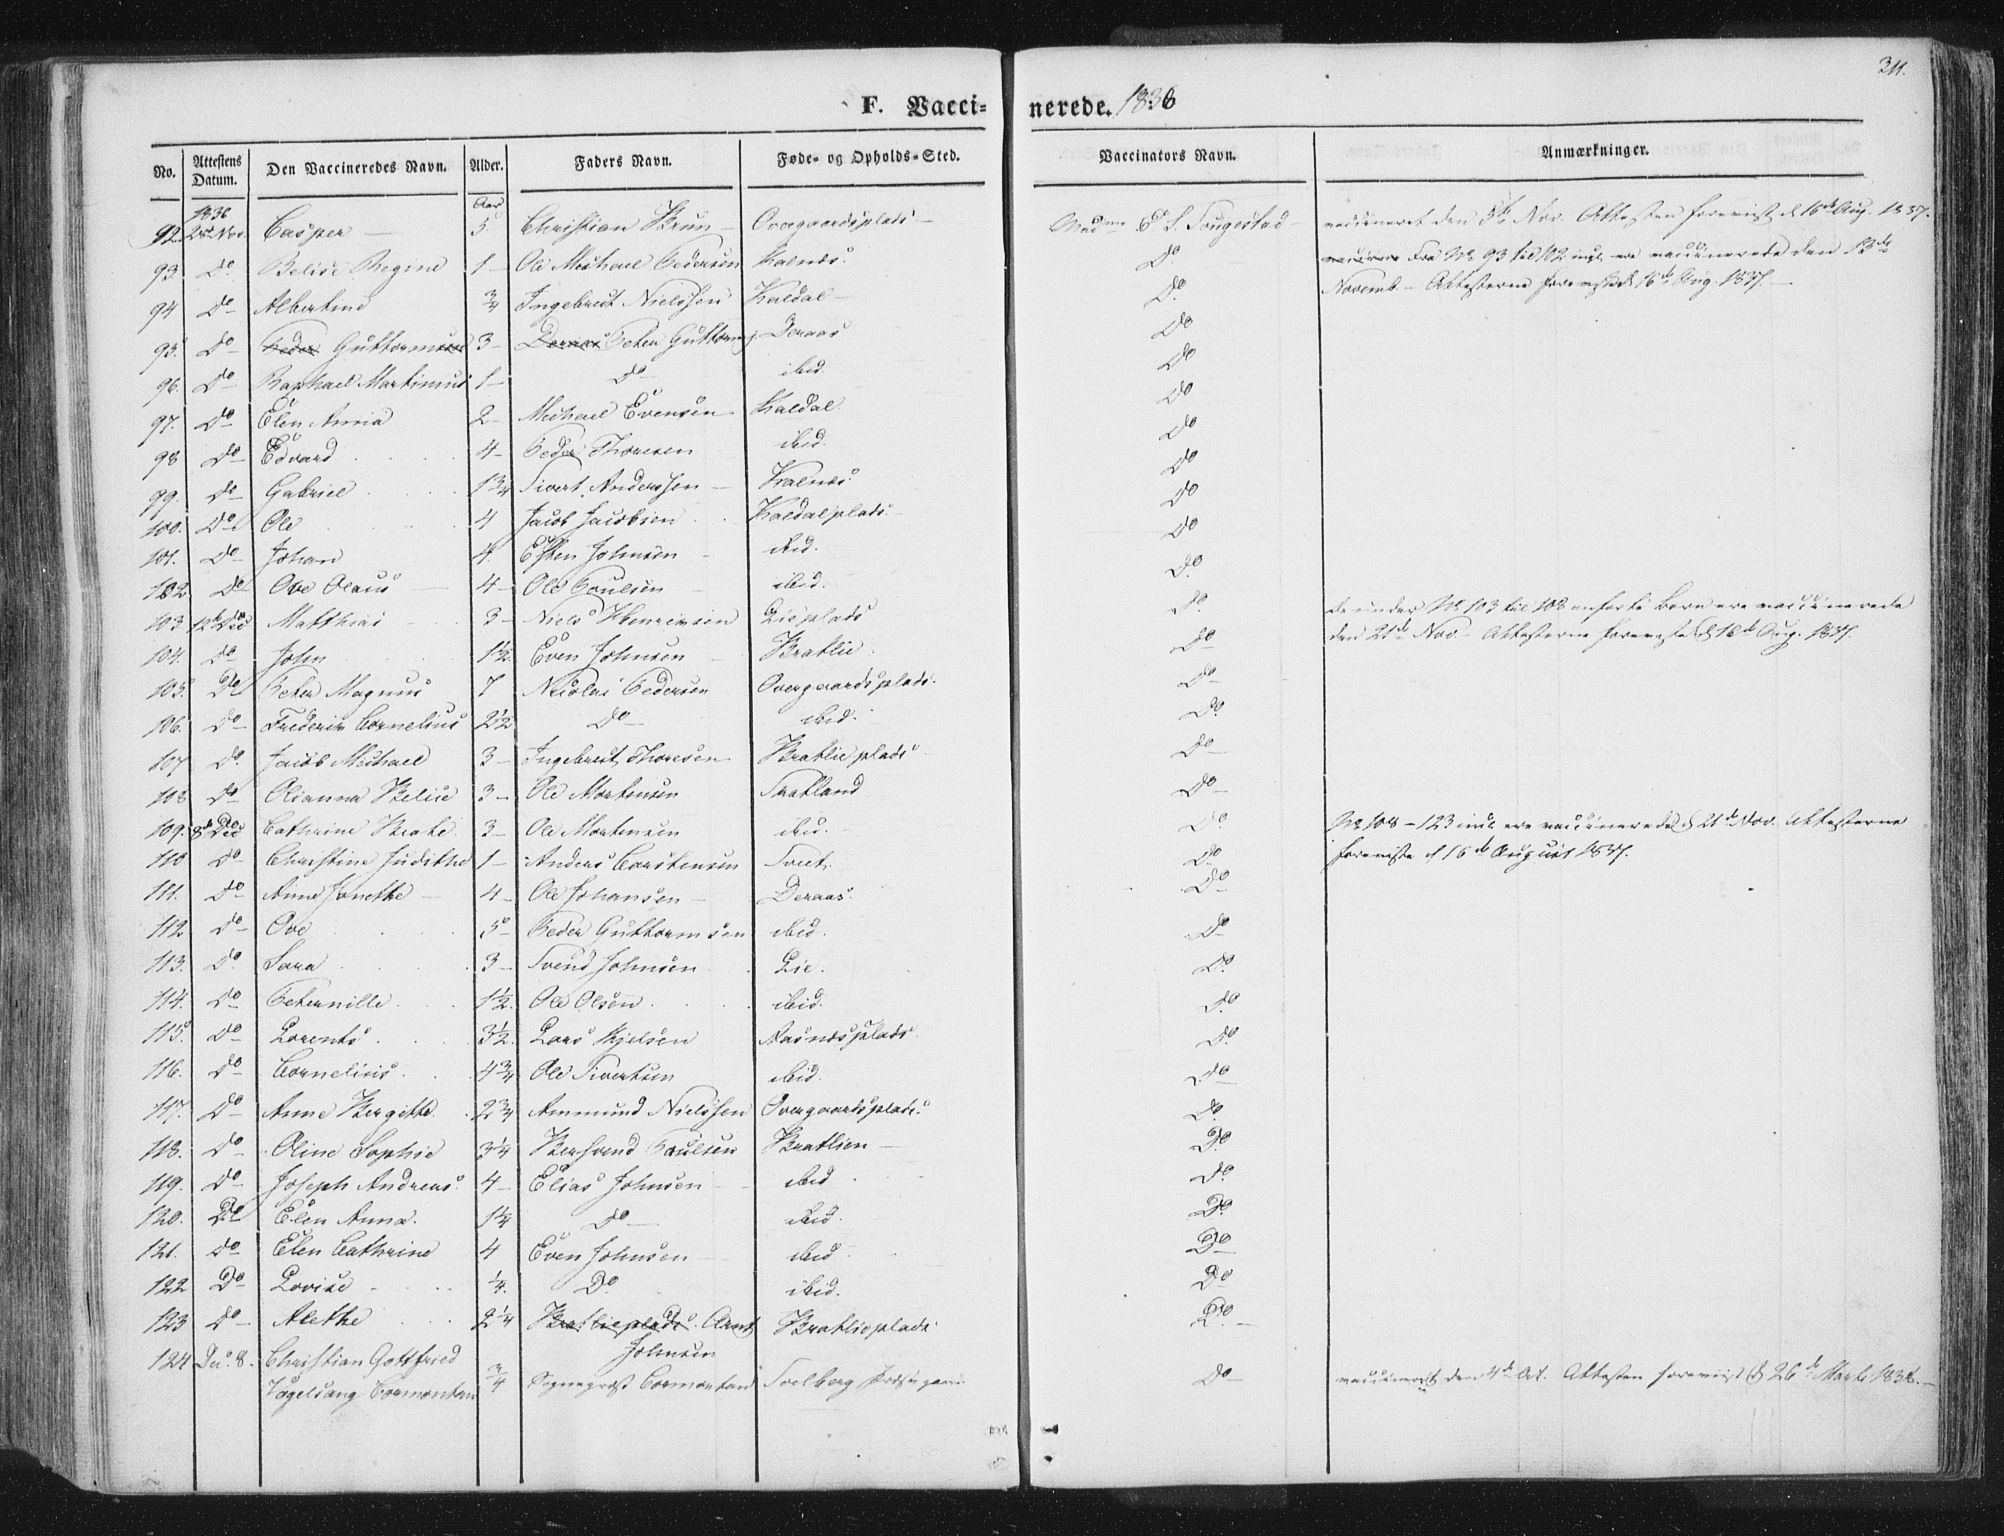 311.
F. Vaccinerede. 1836
No. | Attestens Datum. | Den Vaccineredes Navn. | Alder. | Faders Navn. | Føde- og Opholds-Sted. | Vaccinators Navn. | Anmærkninger.
1836 | Aar
92. | Nov. | Casper — | 5 | Christian Brun — | Overgaardsplads — | Mad | vaccineret den Nov. Attesten foreviist d. 16de Aug. 1837.
93. | Do | Regine | 1 — | Ole Michael Pedersen | Kalnes. | Do | Fra No 93 til 102 incl. ere vaccinerede den
94 | Do | Albertine | 3/4 | Ingebret Nielssen | Kaldal — | Do. | Novemb. — Attesterne foreviste d. 16de Aug. 1837. —
95. | Do | Peder Guttorm | 3 — | Peter Guttorm | Deraas | Do
96. | Do | Raphael Martinus | 1 — | Do | ibid. | Do
97. | Do | Elen Anna | 2 — | Michael Evensen | Kaldal. | Do
98 | Do | Edvard | 4 — | Peder Thoresen | ibid. | Do
99. | Do | Gabriel | 1 3/4 | Sivert Anderssen — | Kalnes | Do
100. | Do | Ole | 4 | Jacob Jacobsen | Kaldalsplads. — | Do
101. | Do | Johan | 4. | Esten Johnsen | ibid. | Do
102 | Do | Ove Olaus — | 4 — | Ole Poulsen — | ibid. | Do.
103 | 12te Dec | Matthias | 3 — | Niels Henriksen | Lieplads | Do. | De under No 103 til 108 anførte Børn ere vaccinerede
104. | Do | John | 1 1/2. | Even Johnsen — | Bratlie. | Do | den 21de Nov. Attesterne foreviste d. 16de Aug. 1837.
105. | Do | Peter Magnus | 7 | Nicolai Pedersen | Overgaardsplads. | Do
106. | Do | Frederik Cornelius | 2 1/2 | Do | ibid. | Do.
107 | Do. | Jacob Michael | 3 — | Ingebret Thoresen | Bratlieplads | Do
108 | Do | Olianna Belise | 3 — | Ole Mortensen | | Do
109. | 8de Dec | Cathrine Beate | 3 — | Ole Mortensen | ibid. — | Do. | No 108 — 123 incl. ere vaccinerede d. 21de Nov. Attesterne
110 | Do | Christine Judithe | 1 — | Anders Carstensen | Tveet. | Do | foreviste d. 16de August 1837.
111. | Do | Anne Janethe — | 4 — | Ole Johansen — | Deraas. | Do
112 | Do | Ove | 5 — | Peder Guttormsen | ibid. | Do
113. | Do. | Sara | 3 — | Svend Johnsen | Lie. | Do.
114. | Do | Peternille. | 1 1/2. | Ole Olsen | ibid. | Do
115. | Do | Lorents | 3 1/2. | Lars Kjelsen | Aasnesplads. | Do.
116. | Do | Cornelius | 4 3/4 | Ole Sivertsen | ibid. | Do
117. | Do | Anne Bergitte. | 2 3/4 | Ammund Nielssen | Overgaardsplads. | Do.
118. | Do | Oline Sophie | 3 1/4 | Bersvend Poulsen | Bratlien — | Do.
119. | Do | Joseph Andreas. | 4 — | Elias Johnsen — | ibid | Do
120. | Do | Elen Anna. | 1 1/4 | Do — | ibid. | Do.
121. | Do | Elen Cathrine | 4 | Even Johnsen — | ibid | Do
122 | Do | Lovise | 1/4. | Do. | ibid. | Do
123 | Do | Alethe | 2 1/4 | Bratlieplads. Arnt Johnsen | Bratlieplads | Do. —
124 | 8. | Christian Gottfried Vogelsang Cormontan | 3/4 | Sognepræst Cormontan | Solberg Præstegaard | Do — | vaccineret den 4de Oct. Attesten foreviist d. 26de Marts 1838. —